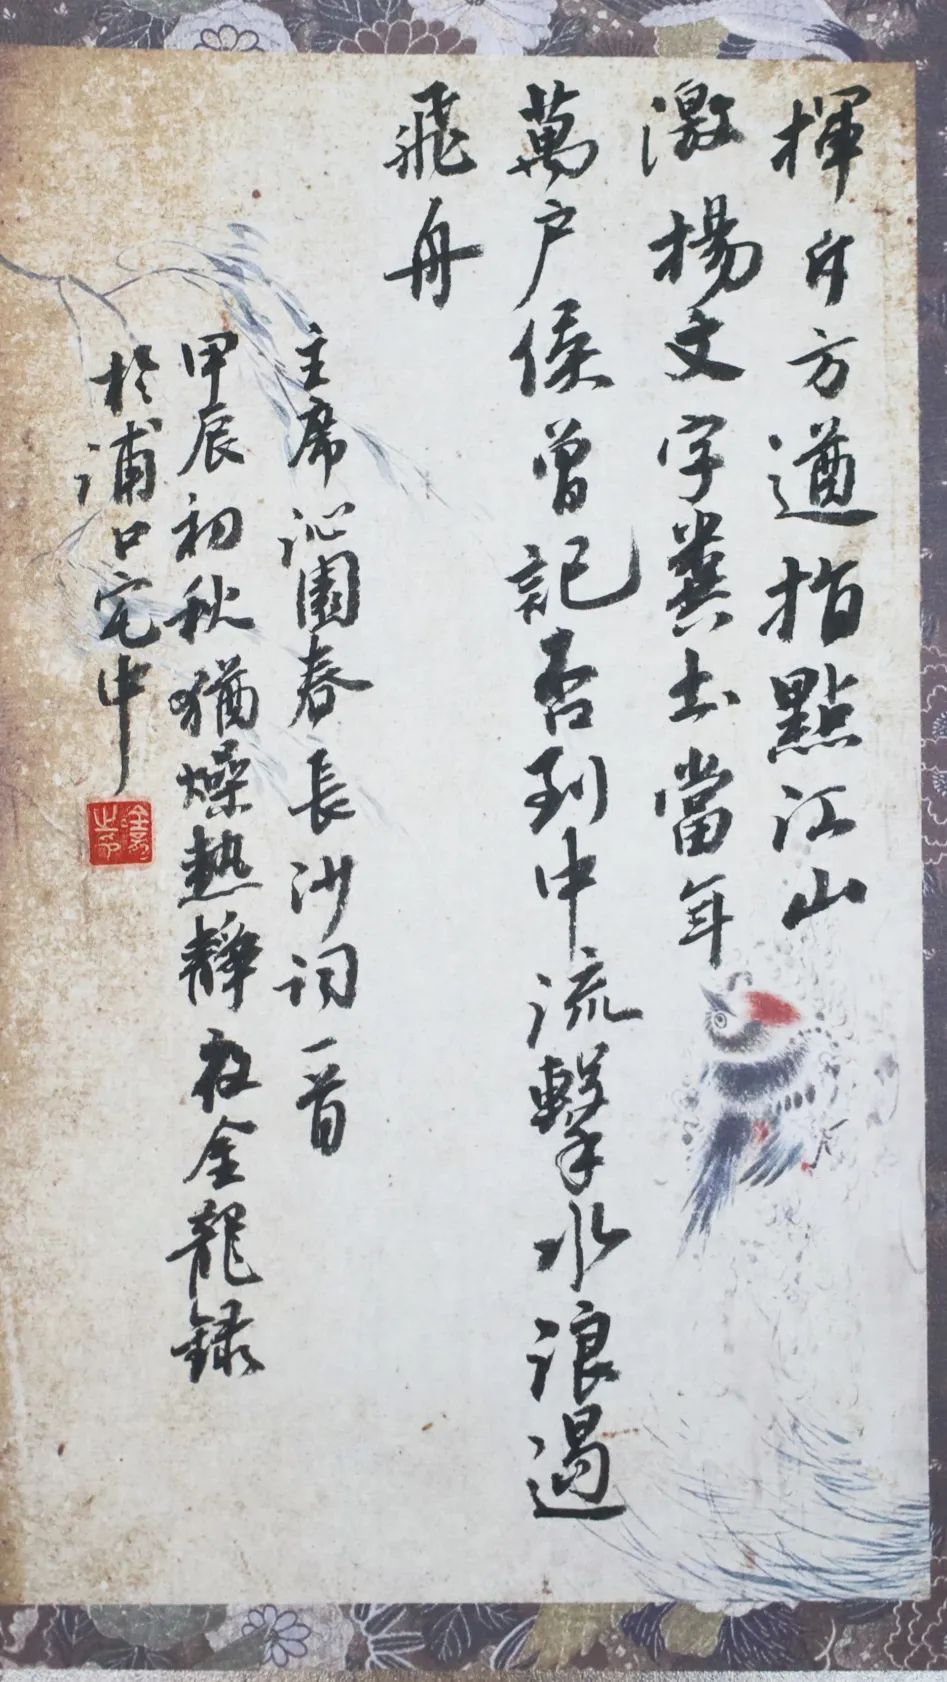 揮斥方遒指點江山
激揚文字糞土當年
萬户侯曾記否到中流擊水浪遏
飛舟
主席沁園春長沙词一首
甲辰初秋猶燥熱靜夜金龍録
於浦口宅中